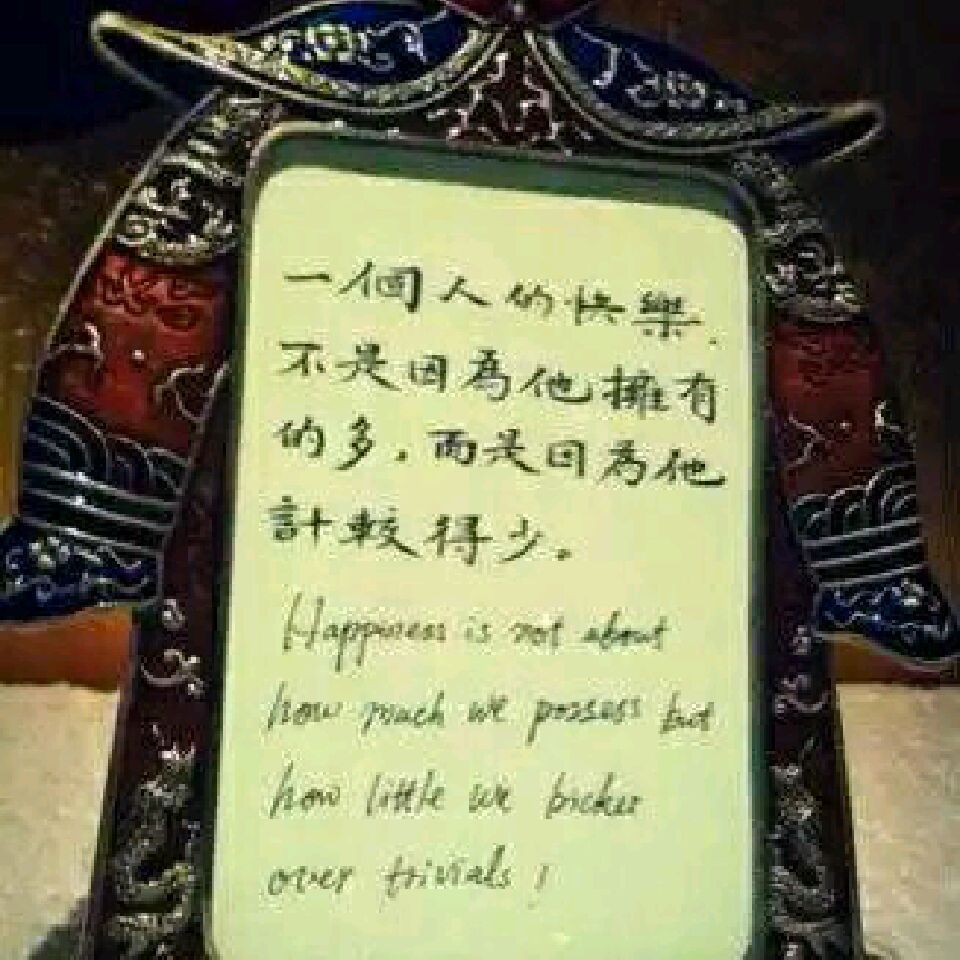 一個人的快樂.
不是因為他擁有
的多,而是因為他
計較得少。
Happiness is not about
how much we possess but
how little we bicker
over trivials!